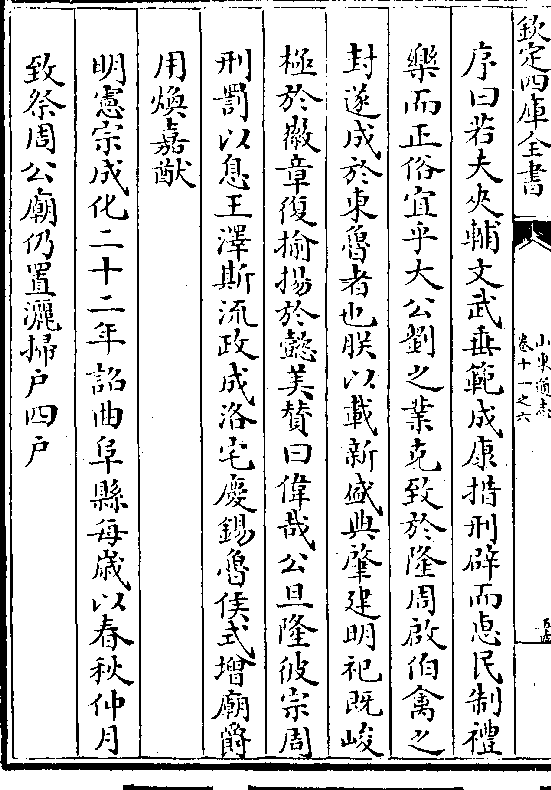 欽定四庫全書
山東通志
卷十一之六
序曰若夫夾輔文武垂範成康措刑辟而恵民制禮
樂而正俗宜乎大公劉之業克致於隆周啟伯禽之
封遂成於東魯者也朕以載新盛典肇建明祀既峻
極於徽章復揄揚於懿美贊曰偉哉公旦隆彼宗周
刑罰以息王澤斯流政成洛宅慶錫魯侯式增廟爵
用煥嘉猷
明憲宗成化二十二年詔曲阜縣每歲以春秋仲月
致祭周公廟仍置灑掃户四户